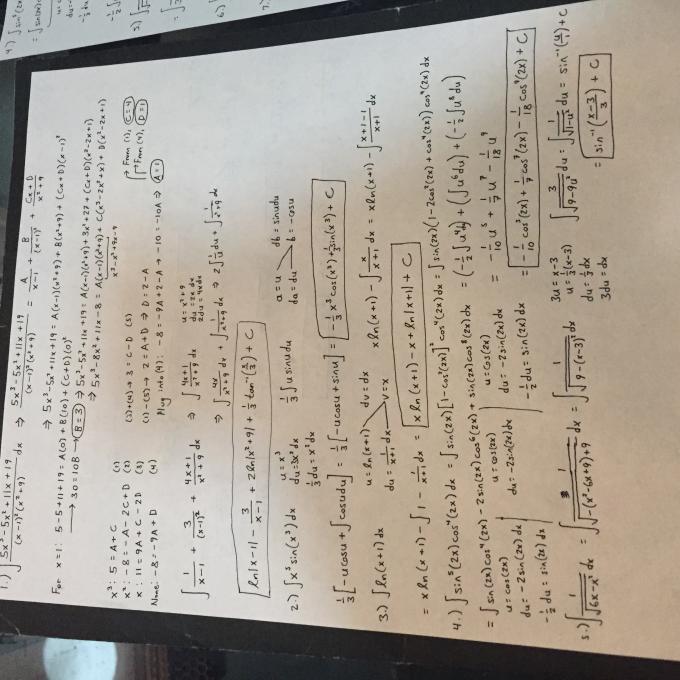 1.) ∫ 5x³-5x²+11x+19 / (x-1)²(x²+9) dx ⇒ 5x³-5x²+11x+19 / (x-1)²(x²+9) = A/x-1 + B/(x-1)² + Cx+D/x²+9
⇒ 5x³-5x²+11x+19 = A(x-1)(x²+9) + B(x²+9) + (Cx+D)(x-1)²
For x=1: 5-5+11+19 = A(0) + B(10) + (C+D)(0)²
→ 30=10B → B=3 ⇒ 5x³-5x²+11x+19 = A(x-1)(x²+9) + 3x²+27 + (Cx+D)(x²-2x+1)
⇒ 5x³-8x²+11x-8 = A(x-1)(x²+9) + C(x³-2x²+x) + D(x²-2x+1)
x³-x²+9x-9
x³: 5=A+C (1)
x²: -8=-A-2C+D (2)
x: 11=9A+C-2D (3)
None: -8=-9A+D (4)
(2)+(4) → 3=C-D (5)
(1)-(5) → 2=A+D ⇒ D=2-A
Plug into (4): -8=-9A+2-A → -10=-10A ⇒ A=1
From (1), C=4
From (4), D=1
∫ 1/x-1 + 3/(x-1)² + 4x+1/x²+9 dx ⇒ ∫ 4x+1/x²+9 dx
u=x²+9
du=2xdx
2du=4xdx
⇒ ∫ 4x/x²+9 dx + ∫ 1/x²+9 dx ⇒ 2∫ 1/u du + ∫ 1/x²+9 dx
ln|x-1| - 3/x-1 + 2ln|x²+9| + 1/3 tan⁻¹(x/3) + C
2.) ∫x⁵sin(x³)dx
u=x³
du=3x²dx
1/3 du=x²dx
1/3 ∫u sinu du
a=u db=sinudu
da=du b=-cosu
1/3[-ucosu + ∫cosudu] = 1/3[-ucosu+sinu] = -1/3 x³cos(x³)+1/3 sin(x³)+C
3.) ∫ln(x+1)dx
u=ln(x+1) dv=dx
du=1/x+1 dx v=x
xln(x+1) - ∫ x/x+1 dx = xln(x+1) - ∫ x+1-1/x+1 dx
= xln(x+1) - ∫1 - 1/x+1 dx = xln(x+1)-x+ln|x+1|+C
4.) ∫sin⁵(2x)cos⁴(2x)dx = ∫sin(2x)[1-cos²(2x)]²cos⁴(2x)dx = ∫sin(2x)(1-2cos²(2x)+cos⁴(2x))cos⁴(2x)dx
= ∫sin(2x)cos⁴(2x) - 2sin(2x)cos⁶(2x) + sin(2x)cos⁸(2x)dx = (-1/2∫u⁴)+(∫u⁶du)+(-1/2∫u⁸du)
u=cos(2x) u=cos(2x) u=cos(2x) = -1/10 u⁵ + 1/7 u⁷ - 1/18 u⁹
du=-2sin(2x)dx du=-2sin(2x)dx du=-2sin(2x)dx
-1/2 du=sin(2x)dx -1/2 du=sin(2x)dx = -1/10 cos⁵(2x)+1/7 cos⁷(2x)-1/18 cos⁹(2x)+C
5.) ∫ 1/√6x-x² dx = ∫ 1/√-(x²-6x+9)+9 dx = ∫ 1/√9-(x-3)² dx
3u=x-3
u=1/3(x-3)
du=1/3dx
3du=dx
∫ 3/√9-9u² du = ∫ 1/√1-u² du = sin⁻¹(u/1)+C
= sin⁻¹(x-3/3)+C